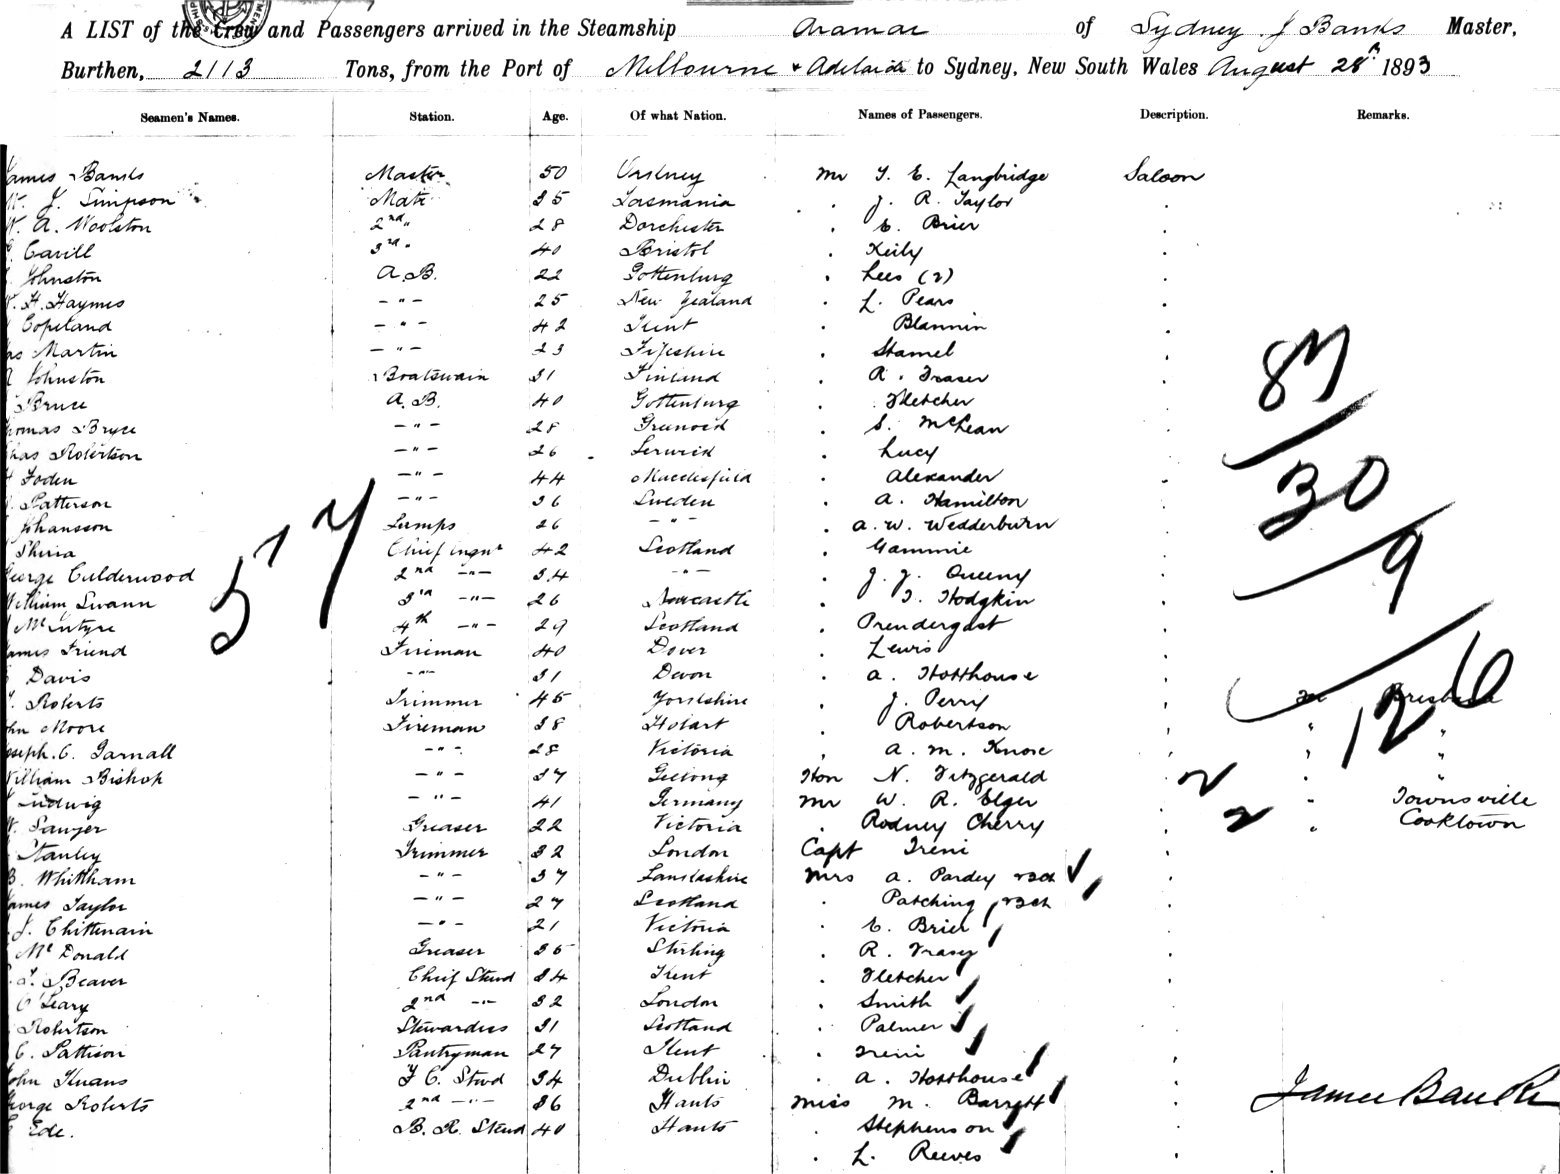 A LIST of the Crew and Passengers arrived in the Steamship Aramac of Sydney J Banks Master,
Burthen, 2113 Tons, from the Port of Melbourne & Adelaide to Sydney, New South Wales August 28th 1893
Seamen's Names. Station. Age. Of what Nation. Names of Passengers. Description. Remarks.
James Banks Master 50 Mr T. E. Langbridge Saloon
W. J. Simpson Mate 35 Tasmania . J. R. Taylor .
W. A. Woolston 2nd " 28 Dorchester . E. Brier .
Cavill 3rd " 40 Bristol . Keily .
Johnston A.B. 22 Gottenburg . Lees (2) .
W. H. Haymes - " - 25 New Zealand . L. Pears .
Copeland - " - 42 Kent . Blannin .
Martin - " - 23 Fifeshire . Stamel .
Johnston Boatswain 31 Finland . R. Fraser .
Bruce A.B. 40 Gottenburg . Fletcher .
Thomas Bryce - " - 28 Greenock . S. McLean .
Chas Robertson - " - 26 Lerwick . Lucy .
Foden - " - 44 Macclesfield . Alexander .
Patterson - " - 36 Sweden . A. Hamilton .
Johansson Lamps 26 - " - . A. W. Wedderburn .
Chief Engnr 42 Scotland . Gammie .
George Calderwood 2nd - " - 34 - " - . J. J. Queeny .
William Swann 3rd - " - 26 Newcastle . T. Hodgkin .
McIntyre 4th - " - 29 Scotland . Prendergast .
James Friend Fireman 40 Dover . Lewis .
Davis - " - 31 Devon . A. Hotthouse .
Roberts Trimmer 45 Yorkshire . J. Perry . Brisbane
John Moore Fireman 38 Hobart . Robertson . " "
Joseph C. Garnall - " - 28 Victoria . A. M. Knox . " "
William Bishop - " - 37 Geelong Hon N. Fitzgerald " "
Ludwig - " - 41 Germany Mr W. R. Elger " Townsville
W. Sawyer Greaser 22 Victoria . Rodney Cherry " Cooktown
Stanley Trimmer 32 London Capt Treni .
B. Whittham - " - 37 Lancashire Mrs A. Pardey .
James Taylor - " - 27 Scotland . Patching .
J. Chittenain - " - 21 Victoria . E. Brier .
McDonald Greaser 36 Stirling . R.
T. Beaver Chief Stewd 34 Kent . Fletcher .
O'Leary 2nd - " - 32 London . Smith .
Robertson Stewardess 31 Scotland . Palmer .
C. Pattison Pantryman 27 Kent . Treni .
John F C. Stewd 34 Dublin . A. Hotthouse .
George Roberts 2nd - " - 36 Hants Miss M. Barrett .
Ede. B. R. Stewd 40 Hants . Stephenson .
. L. Reeves
57
87
30
9
126
2
2
James Banks